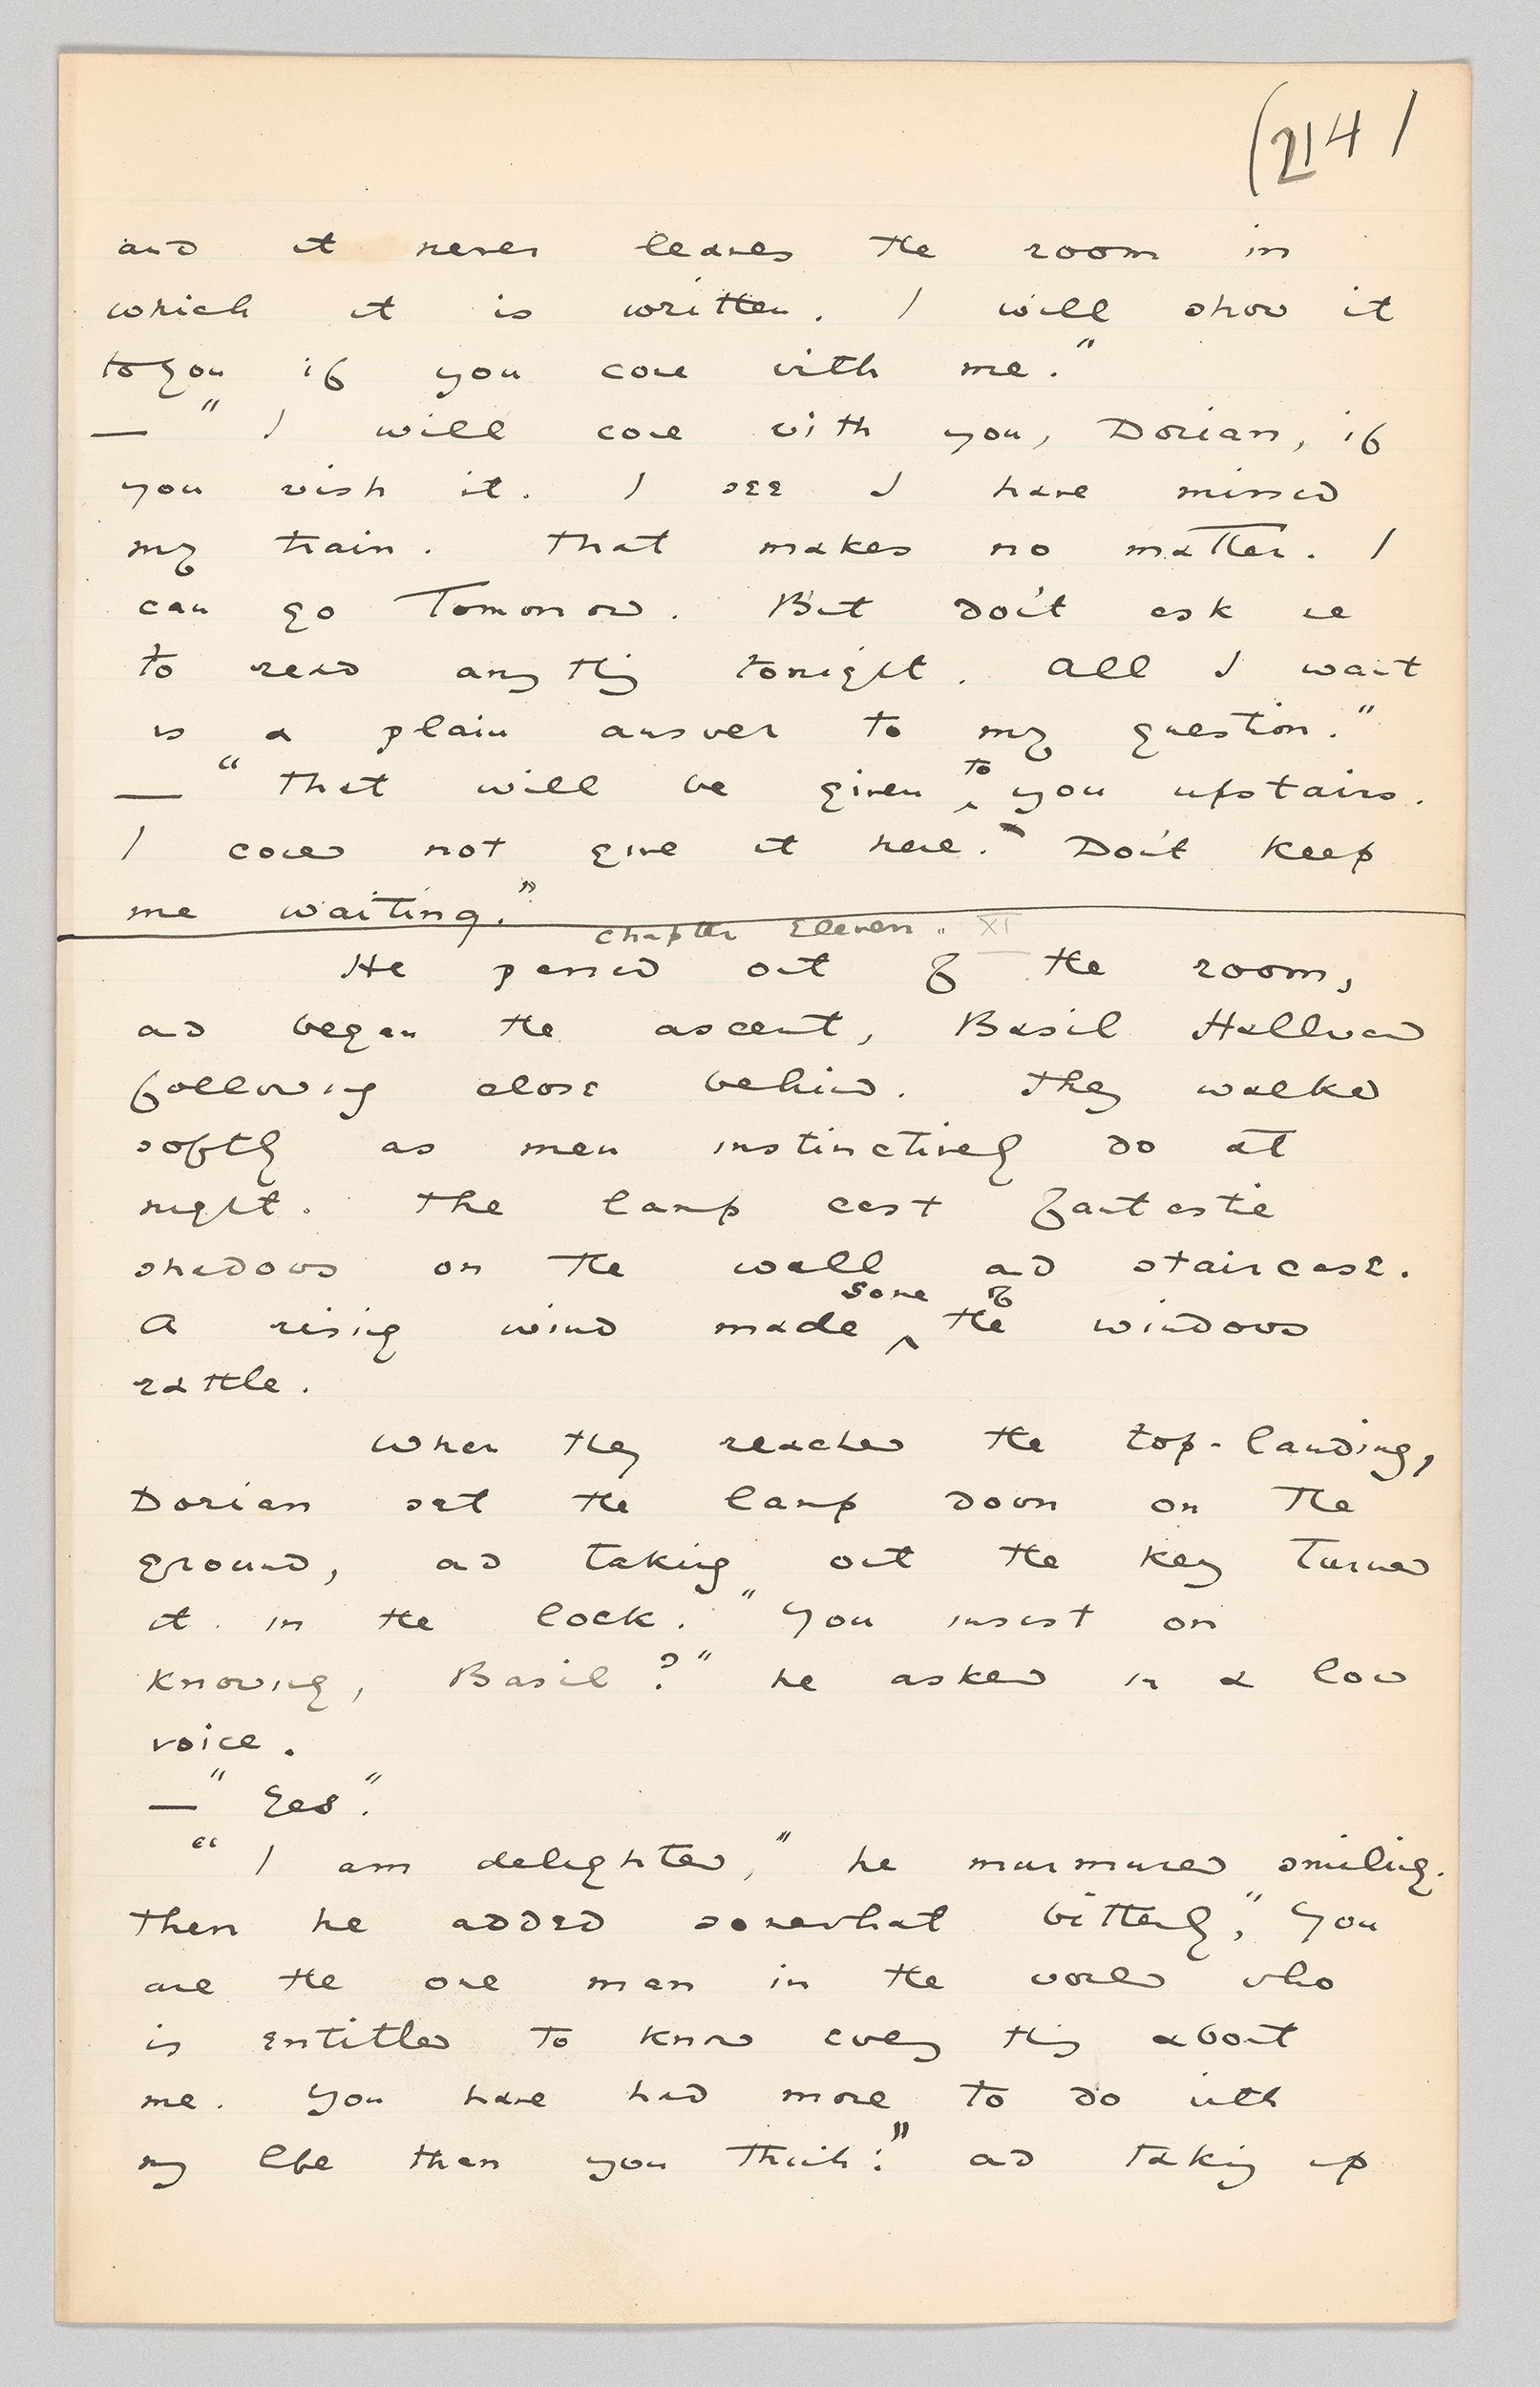 (214)
and it never leaves the room in
which it is written. I will show it
to you if you come with me."
— "I will come with you, Dorian, if
you wish it. I see I have missed
my train. That makes no matter. I
can go tomorrow. But don't ask me
to read anything tonight. All I want
is a plain answer to my question."
— "That will be given ^to you upstairs.
I could not give it here. Don't keep
me waiting."
Chapter Eleven. XI
He passed out of the room,
and began the ascent, Basil Hallward
following close behind. They walked
softly as men instinctively do at
night. The lamp cast fantastic
shadows on the wall and staircase.
A rising wind made ^some of the windows
rattle.
When they reached the top-landing,
Dorian set the lamp down on the
ground, and taking out the key turned
it in the lock. "You insist on
knowing, Basil?" he asked in a low
voice.
— "Yes".
"I am delighted," he murmured smiling.
Then he added somewhat bitterly, "You
are the one man in the world who
is entitled to know everything about
me. You have had more to do with
my life than you think:" and taking up